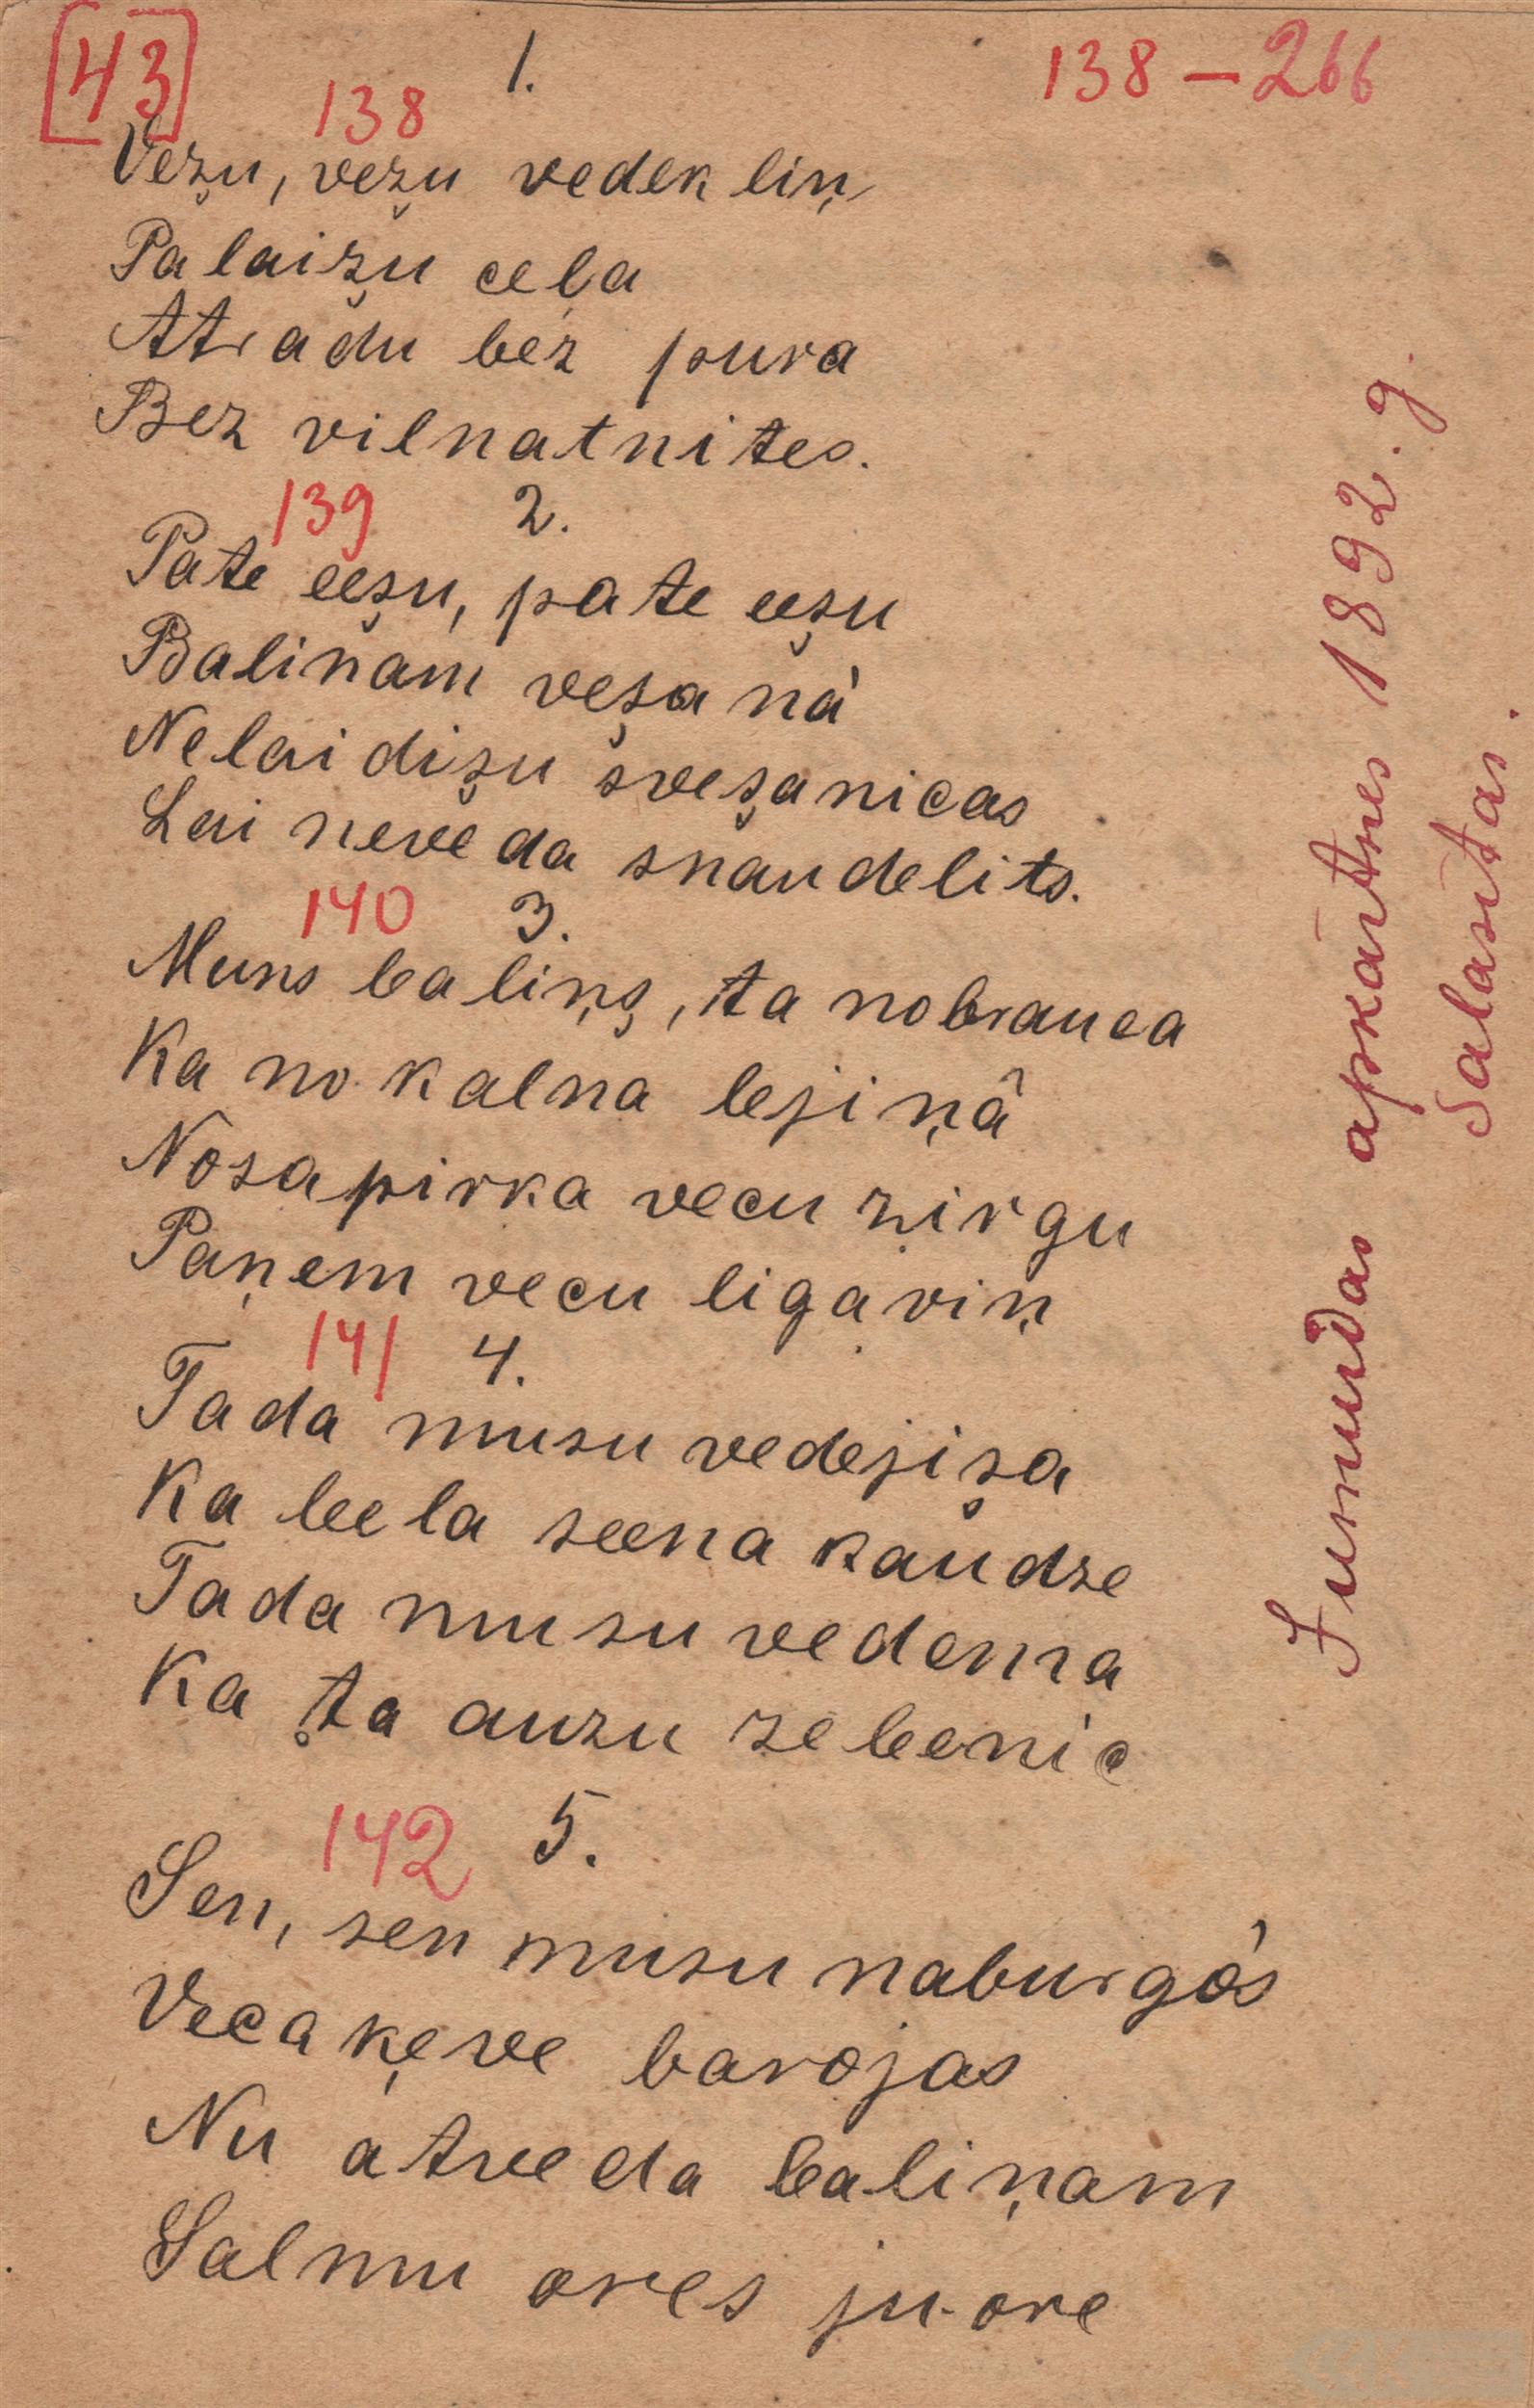 [43]
1.
138 – 266
138
Vez̦u, vez̦u vedeklin̦
Palaiz̦u cel̦a
Atradu bez pura
Bez vilnatnites.
139
2.
Pate eeșu, pate eeșu
Balinam veșa nà
Nelaidișu sveșanicas
Lai neveda snaudelits.
140
3.
Muns balin̦ș, ta nobrauca
Ka no kalna lejin̦â
Nosapirka vecu zirgu
Pan̦em vecu ligavin̦
141
4.
Tada musu vedejișa
Ka leela seena kaudze
Tada musu vedema
Ka ta auzu zebeenic
142
5.
Sen, sen musu naburgòs
Veca k̦eve barojas
Nu atveda balin̦am
Salmu ores ju-ore
apkārtnes 1892. g.
Salasītas.